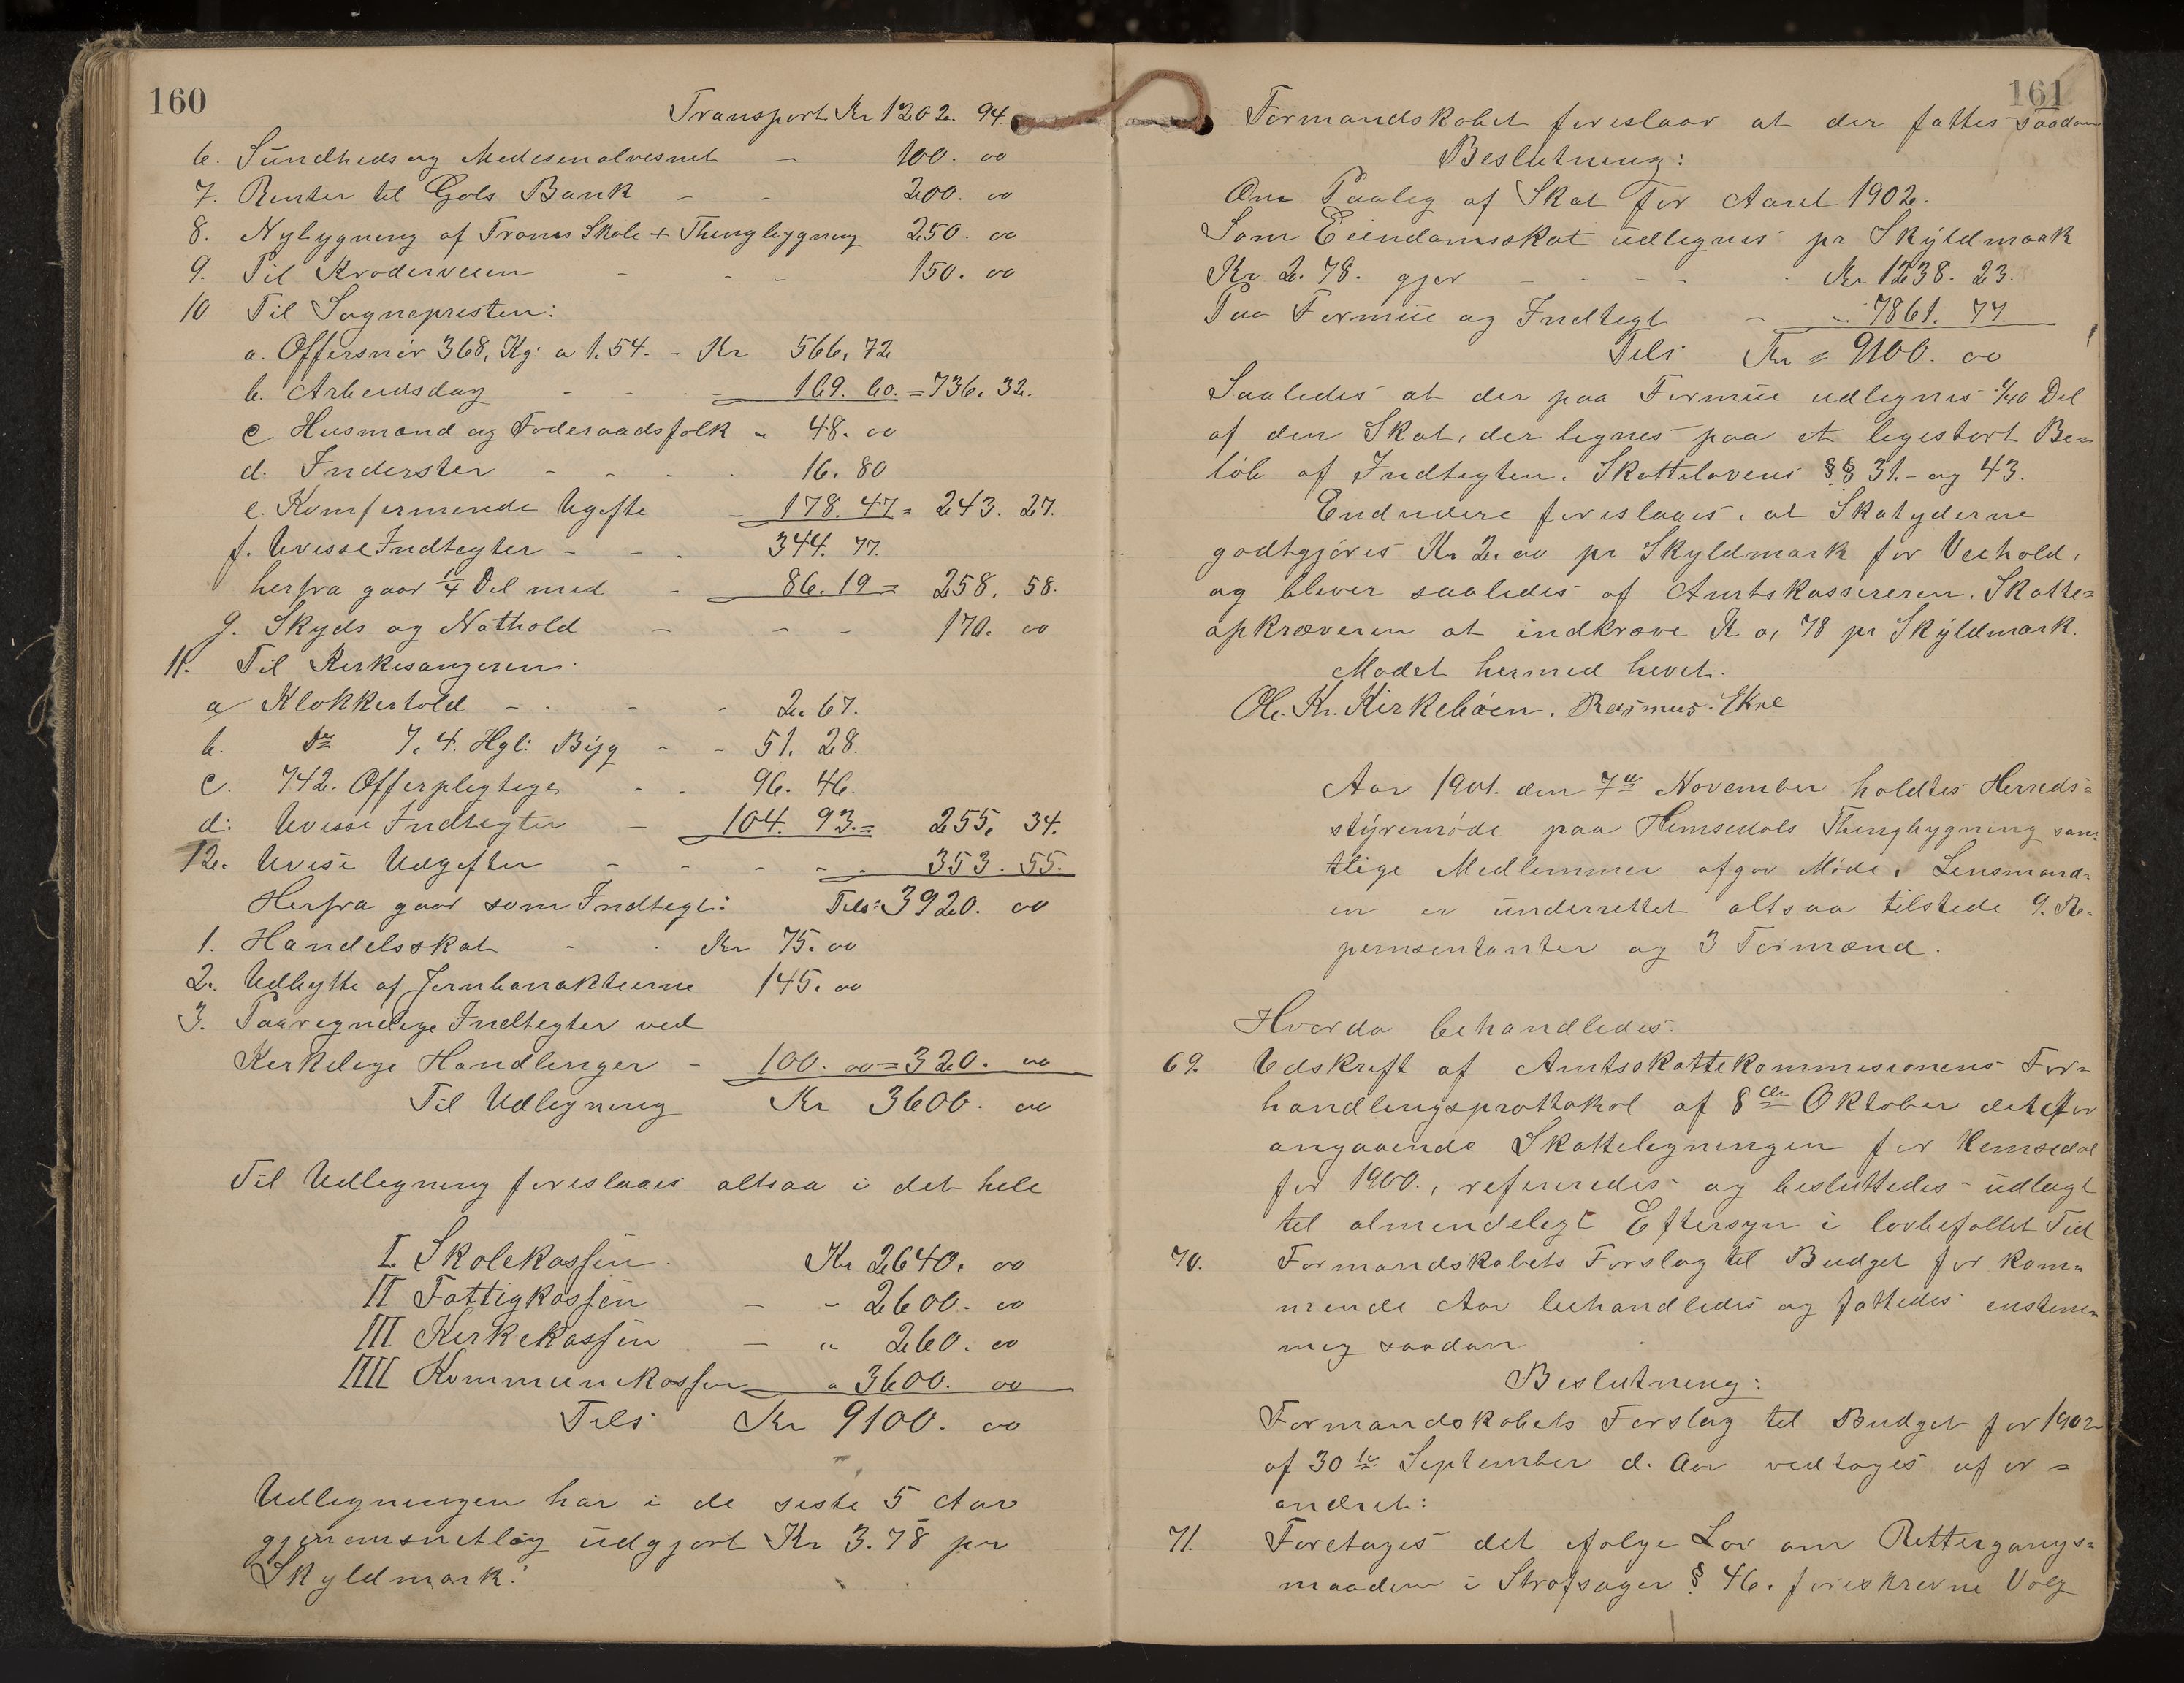 160
Transport Kr 1202. 94.
6. Sundheds og Medesenalvesnet - 100. 00
7. Renter til Gols Bank - - 200. 00
8. Nybygning af Skole + Thingbygning 250. 00
9. Til Kroderveien - - - 150. 00
10. Til Sognepresten:
a. Offersmör 368, Kg: a 1.54. - Kr 566, 72
b. Arbeidsdag - - - 169. 60. = 736, 32.
c Husmænd og Foderaadsfolk " 48. 00
d. Inderster - - - . 16. 80
e. Komfermerende Ugefte - 178. 47 = 243. 27.
f. Uvisse Indtegter - - . 344. 77.
herfra gaar 1/4 Del med - 86. 19 = 258. 58.
g. Skyds og Nathold - - - 170. 00
11. Til Kirkesangeren.
a Klokkertold - . - - 2. 67.
b. Do 7, 4. Hgl: Byg - - 51. 28.
c. 742. Offerplegtige - . 96. 46.
d: Uvisse Indtegter - 104. 93. = 255, 34.
12. Uvise Udgefter - - - - . 353. 55.
Herfra gaar som Indtegt: Tils: 3920. 00
1. Handelsskat - . Kr 75. 00
2. Udbytte af Jernbanakteierne 145. 00
3. Paaregnelige Indtegter ved
Kerkelige Handlinger - 100. 00 = 320. 00
Til Udlegning Kr 3600. 00
Til Udlegning foreslaaes altsaa i det hele
I. Skolekassen. Kr 2640. 00
II Fattigkassen - - 2600. 00
III Kerkekassen - " 260. 00
IIII Kommunekassen " 3600. 00
Tils Kr 9100. 00
Udlegningen har i de seste 5 Aar
gjenemsnetleg udgjort Kr 3.78 pr
Skyldmark.
161
Formandskabet foreslaar at der fattes saadan
Beslutning:
Om Paaleg af Skat for Aaret 1902.
Som Eiendomsskat udlegnes pr Skyldmark
Kr 2. 78. gjør - - - - . Kr 1238. 23.
Paa Formue og Indtegt - " 7861. 77.
Tils Kr = 9100. 00
Saaledes at der paa Formue udlegnes 1/40 Del
af den Skat, der legnes paa et legestort Be=
löb af Indtegten. Skattelovens §§ 31.- og 43.
Endvidere foreslaaes, at Skatyderne
godtgjöres Kr 2. 00 pr Skyldmark for Veihold,
og bliver saaledes af Amtskassereren. Skatte=
opkræveren at indkræve K 0, 78 pr Skyldmark.
Mødet hermed hevet.
Ole. Kr. Kirkebøen. Rasmus. Ekre
Aar 1901. den 7de November holdtes Herreds=
styremöde paa Hemsedals Thingbygning sam
tlige Medlemmer afgav Möde. Lensmand-
en er underrettet altsaa tilstede 9. Re-
persentanter og 3 Formænd.
Hvorda behandledes.
69. Udskreft af Amtsskattekommesionens For=
handlingsprottokol af 8de Oktober
angaaende Skattelegningen for Hemsedal
for 1900., refereredes og besluttedes udlagt
til almendeligt Eftersyn i lovbefallet Tid
70. Formandskabets Forslag til Budget for kom=
mende Aar behandledes og fattedes enstem
mig saadan
Beslutning:
Formandskabets Forslag til Budget for 1902
af 30te September d. Aar vedtages uf or =
andret:
71. Foretages det ifølge Lov om Rettergangs=
maaden i Strafsager § 46. foreskrevne Valg